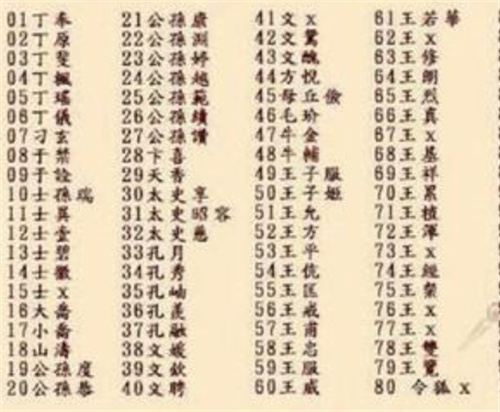 01丁奉
02丁原
03丁斐
04丁楓
05丁瑤
06丁儀
07刁玄
08于禁
09于詮
10士孫瑞
11士異
12士壹
13士碧
14士徽
15士x
16大喬
17小喬
18山濤
19公孫度
20公孫恭
21公孫康
22公孫淵
23公孫婷
24公孫越
25公孫範
26公孫續
27公孫瓚
28卞喜
29天香
30太史享
31太史昭容
32太史慈
33孔月
34孔秀
35孔岫
36孔羨
37孔融
38文媛
39文欽
40文聘
41文x
42文鴦
43文醜
44方悅
45毋丘儉
46毛玠
47牛金
48牛輔
49王子服
50王子姬
51王允
52王方
53王平
54王伉
55王匡
56王戒
57王甫
58王忠
59王服
60王威
61王若華
62王x
63王修
64王朗
65王烈
66王真
67王x
68王基
69王祥
70王累
71王植
72王渾
73王x
74王經
75王榮
76王x
77王x
78王雙
79王覽
80 令狐x